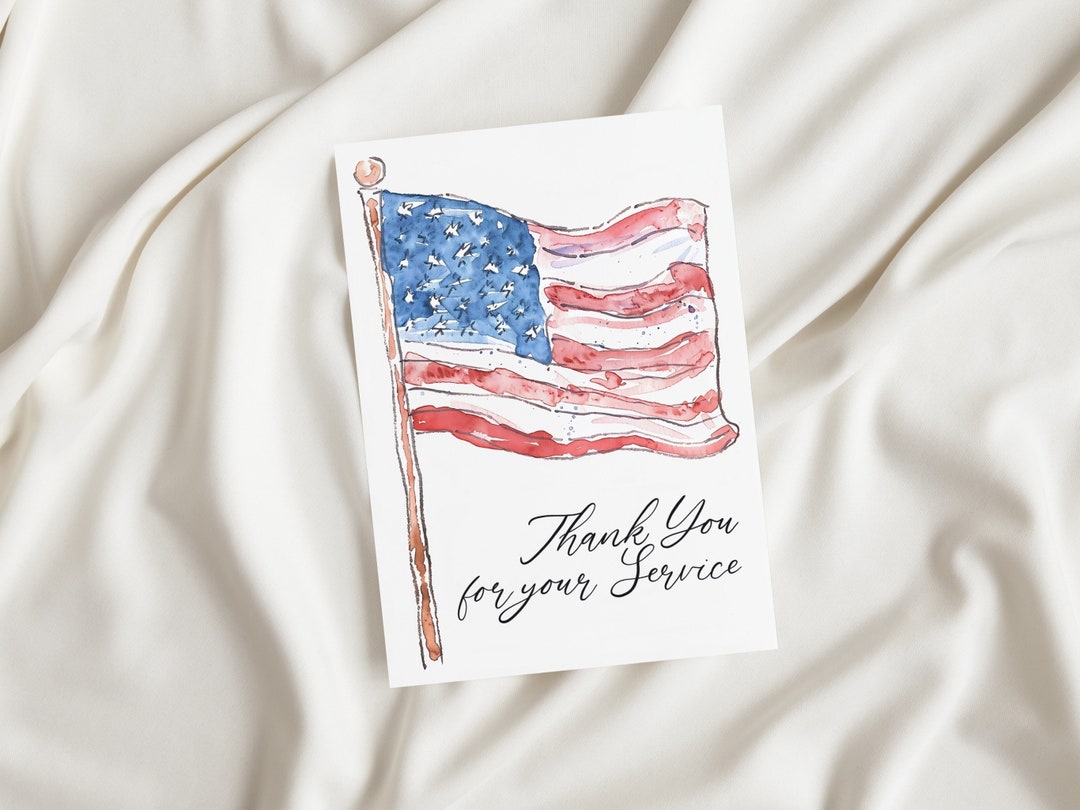 Thank You
for your Service